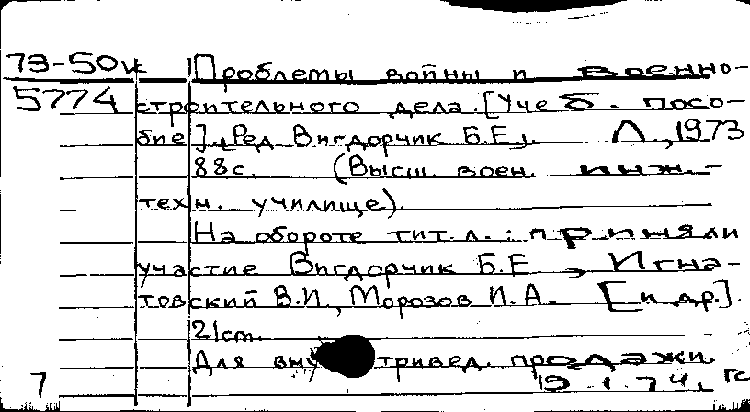 73-50к Проблемы войны и военно-
5774 строительного дела.[Учеб. посо-
бие]. [Ред. Вигдорчик Б.Е.]. Л., 1973
88с. (Высш. воен. инж.-
техн. училище).
На обороте тит. л.: приняли
участие Вигдорчик Б.Е., Игна-
товский В.И., Морозов И.А. [и др.].
21см.
Для вну тривед. продажи.
7 19.1.74.